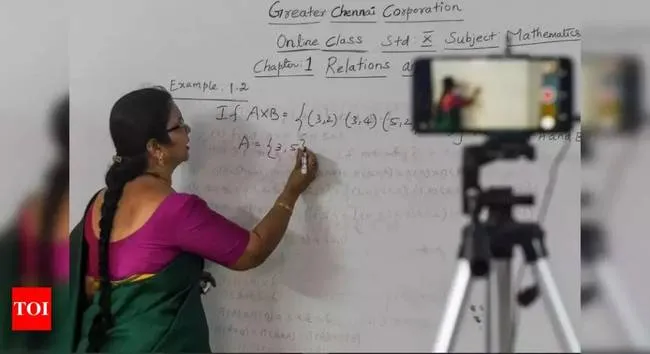 Greater Chennai Corporation
Online Class Std: X Subject: Mathematics
Chapter: 1 Relations
Example. 1.2
If A×B = {(3,2) (3,4) (5,2
A = {3, 5}
TOI